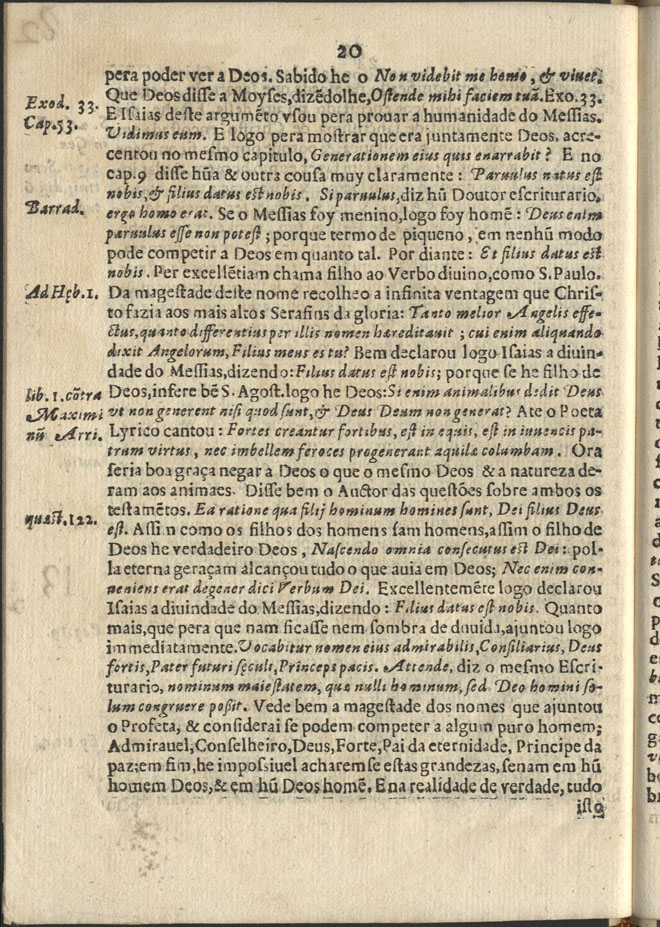 20
pera poder ver a Deos. Sabido he o Non videbit me homo, & viuet.
Exod. 33. Que Deos disse a Moyses, dizẽdolhe, Ostende mihi faciem tuã. Exo. 33.
Cap. 53. E Isaias deste argumẽto vsou pera prouar a humanidade do Messias.
Vidimus eum. E logo pera mostrar que era juntamente Deos, acre-
centou no mesmo capitulo, Generationem eius quis enarrabit? E no
cap. 9 disse hũa & outra cousa muy claramente: Paruulus natus est
nobis, & filius datus est nobis. Si paruulus, diz hũ Doutor escriturario,
Barrad. ergo homo erat. Se o Messias foy menino, logo foy homẽ: Deus enim
paruulus esse non potest; porque termo de piqueno, em nenhũ modo
pode competir a Deos em quanto tal. Por diante: Et filius datus est
nobis. Per excellẽtiam chama filho ao Verbo diuino, como S. Paulo.
Ad Hęb. 1. Da magestade deste nome recolheo a infinita ventagem que Chris-
to fazia aos mais altos Serafins da gloria: Tanto melior Angelis effe-
ctus, quanto differentius per illis nomen hæreditauit; cui enim aliquando
dixit Angelorum, Filius meus es tu? Bem declarou logo Isaias a diuin-
dade do Messias, dizendo: Filius datus est nobis; porque se he filho de
lib. 1. cõtra Deos, infere bẽ S. Agost. logo he Deos: Si enim animalibus dedit Deus
Maximi vt non generent nisi quod sunt, & Deus Deum non generat? Ate o Poeta
nũ Arri. Lyrico cantou: Fortes creantur fortibus, est in equis, est in iuuencis pa-
trum virtus, nec imbellem feroces progenerant aquilæ columbam. Ora
seria boa graça negar à Deos o que o mesmo Deos & a natureza de-
ram aos animaes. Disse bem o Auctor das questões sobre ambos os
quæst. 122. testamẽtos. Ea ratione qua filij hominum homines sunt, Dei filius Deus
est. Assi n como os filhos dos homens sam homens, assim o filho de
Deos he verdadeiro Deos, Nascendo omnia consecutus est Dei: pol-
la eterna geraçam alcançou tudo o que auia em Deos; Nec enim con-
ueniens erat degener dici Verbum Dei. Excellentemẽte logo declarou
Isaias a diuindade do Messias, dizendo: Filius datus est nobis. Quanto
mais, que pera que nam ficasse nem sombra de duuida, ajuntou logo
immediatamente. Vocabitur nomen eius admirabilis, Consiliarius, Deus
fortis, Pater futuri sęculi, Princeps pacis. Attende, diz o mesmo Escri-
turario, nominum maiestatem, quæ nulli hominum, sed Deo homini so-
lum congruere possit. Vede bem a magestade dos nomes que ajuntou
o Profeta, & considerai se podem competer a algum puro homem;
Admirauel, Conselheiro, Deus, Forte, Pai da eternidade, Principe da
paz: em fim, he impossiuel acharem se estas grandezas, senam em hũ
homem Deos, & em hũ Deos homẽ. E na realidade de verdade, tudo
isto